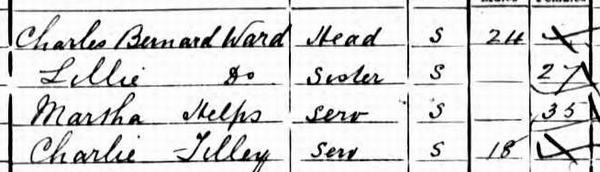 Charles Bernard Ward Head S 24
Lillie Do Sister S — 27
Martha Helps Serv S — 35
Charlie Tilley Serv S 18